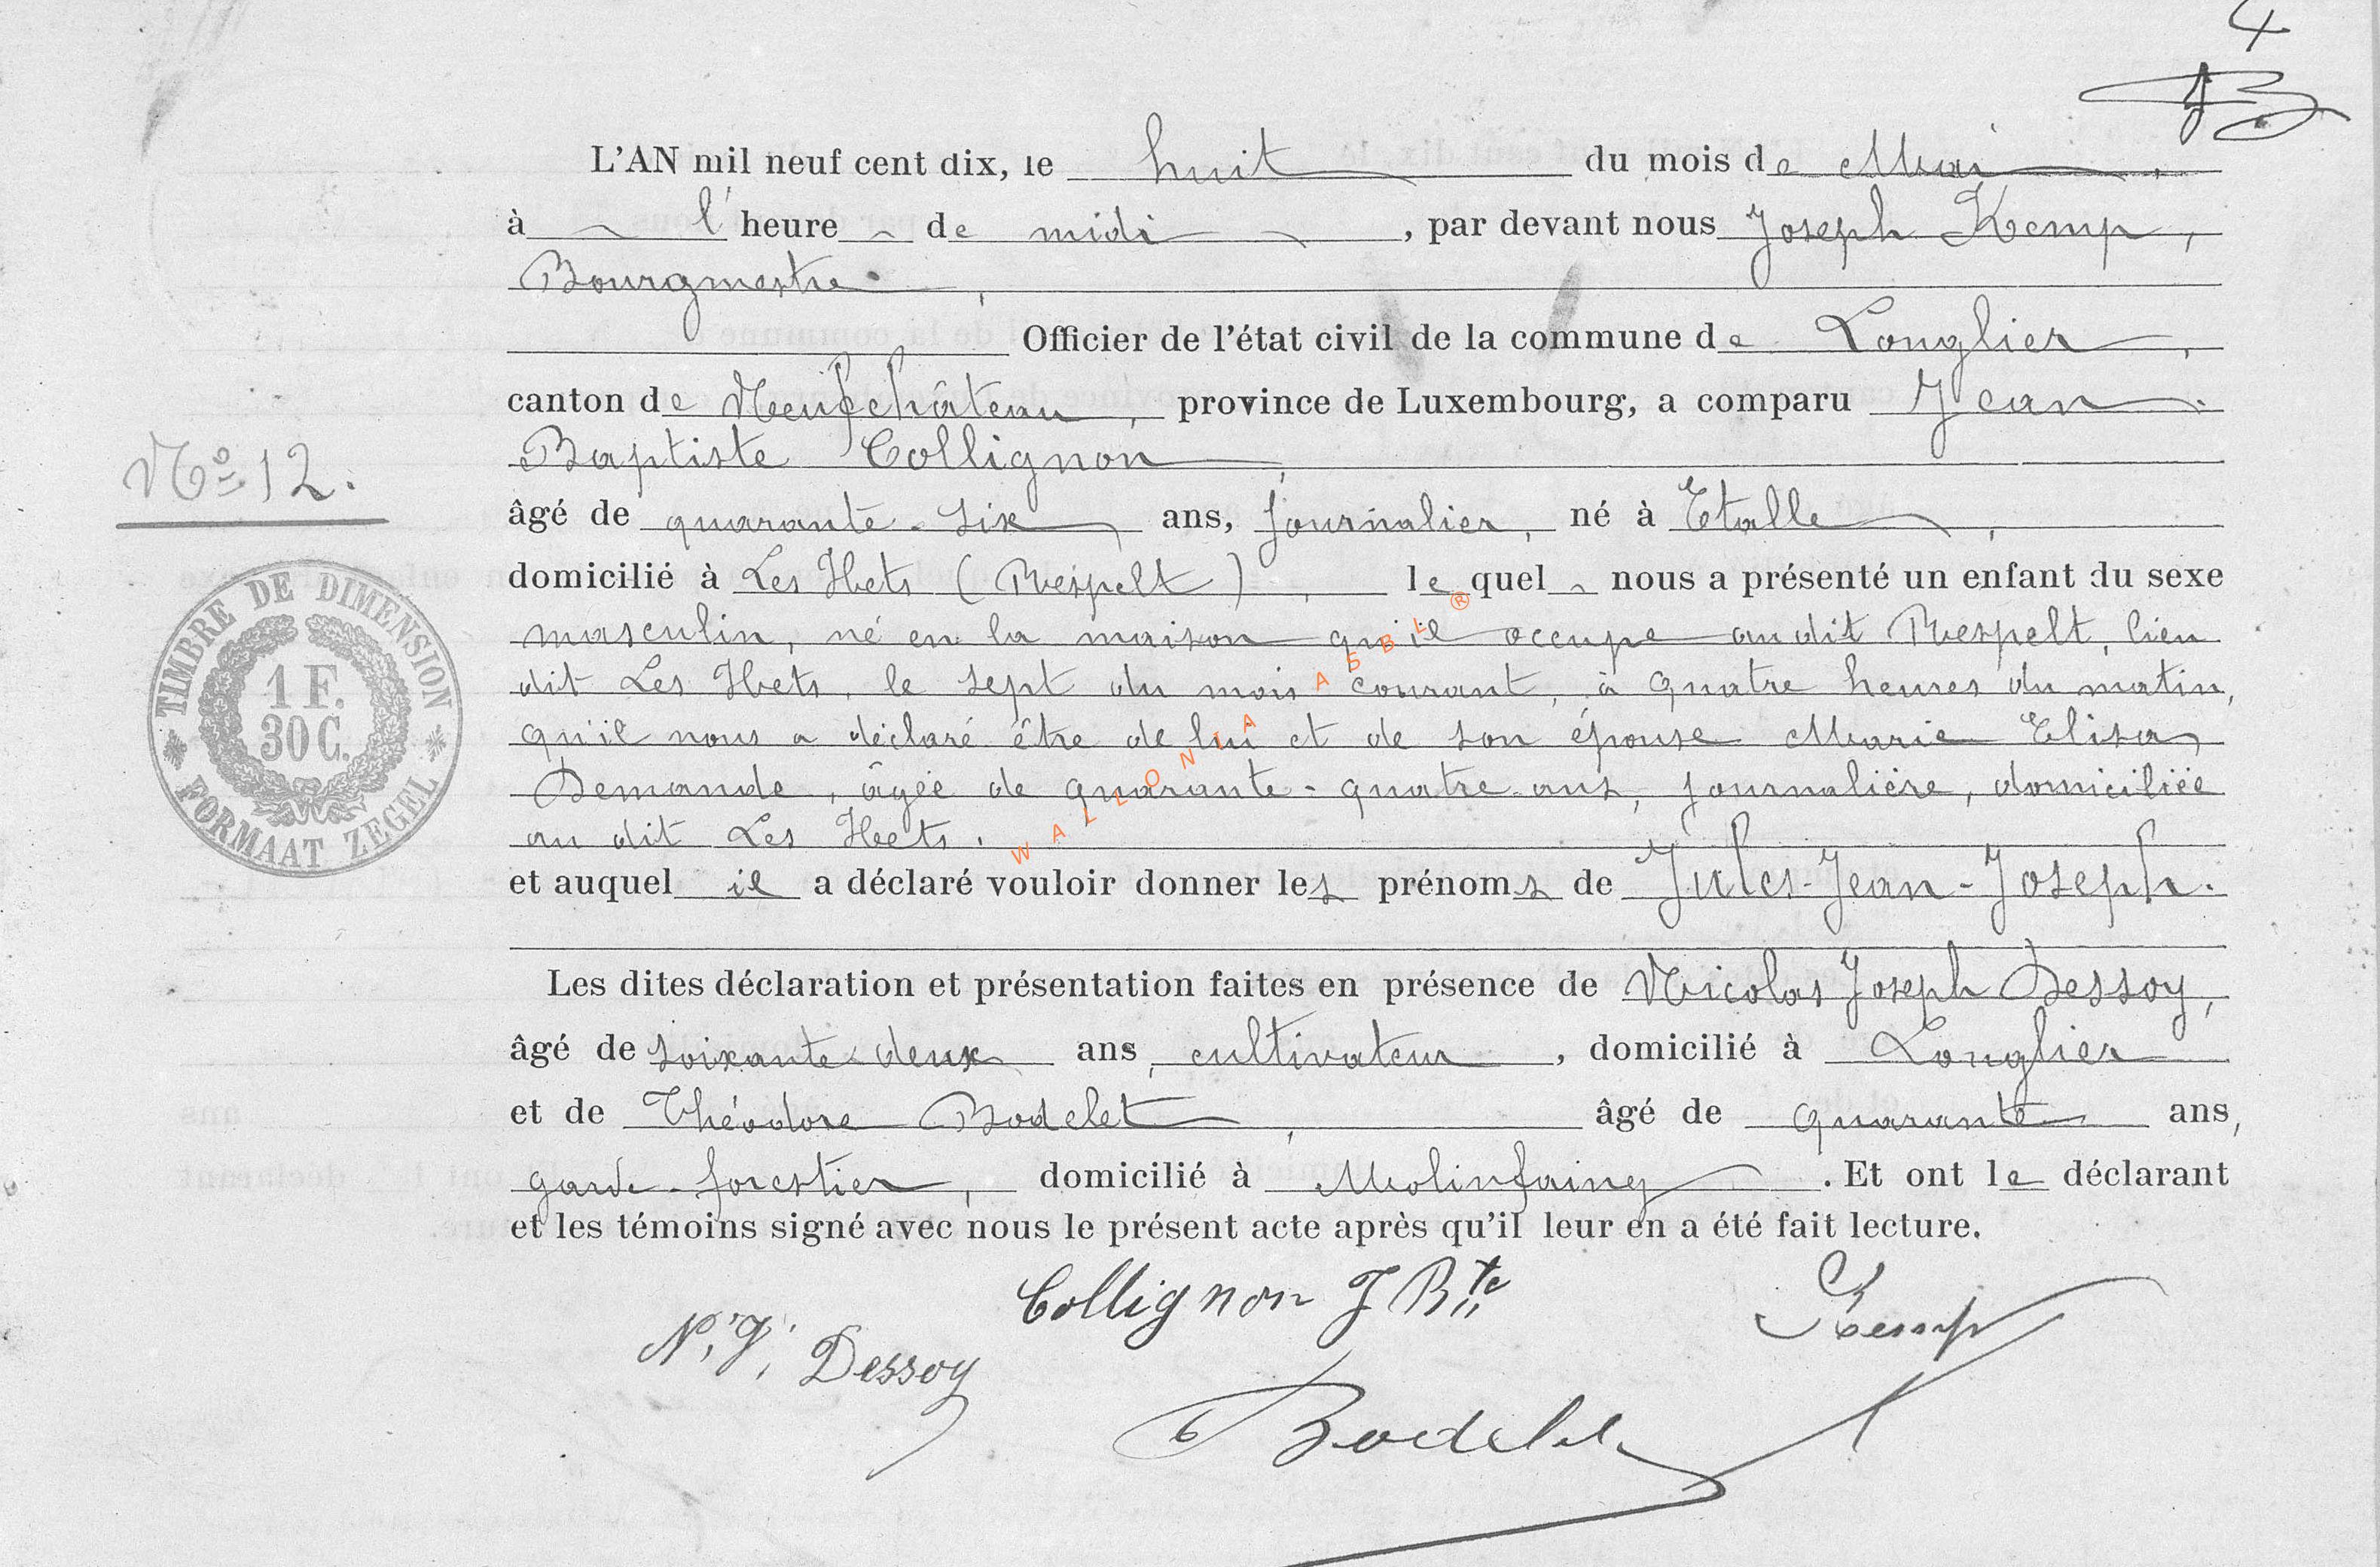 4
L'AN mil neuf cent dix, le huit du mois de Mai,
à l'heure de midi, par devant nous Joseph Kemp,
Bourgmestre,
Officier de l'état civil de la commune de Longlier,
canton de Neufchâteau, province de Luxembourg, a comparu Jean
Baptiste Collignon,
No 12.
âgé de quarante-six ans, journalier, né à Etalle,
domicilié à Les Hets (Respelt), lequel nous a présenté un enfant du sexe
masculin, né en la maison qu'il occupe au dit Respelt, lieu
dit Les Hets, le sept du mois courant, à quatre heures du matin,
qu'il nous a déclaré être de lui et de son épouse Marie Elisa
Demande, âgée de quarante-quatre ans, journalière, domiciliée
au dit Les Hets.
et auquel il a déclaré vouloir donner les prénoms de Jules-Jean-Joseph.
TIMBRE DE DIMENSION
1 F.
30 C.
FORMAAT ZEGEL
WALLONIA ASBL ®
Les dites déclaration et présentation faites en présence de Nicolas Joseph Dessoy,
âgé de soixante-deux ans, cultivateur, domicilié à Longlier
et de Théodore Bodelet, âgé de quarante ans,
garde-forestier, domicilié à Molinfaing. Et ont le déclarant
et les témoins signé avec nous le présent acte après qu'il leur en a été fait lecture.
Collignon J Bte
Kemp
N. J. Dessoy
Bodelet